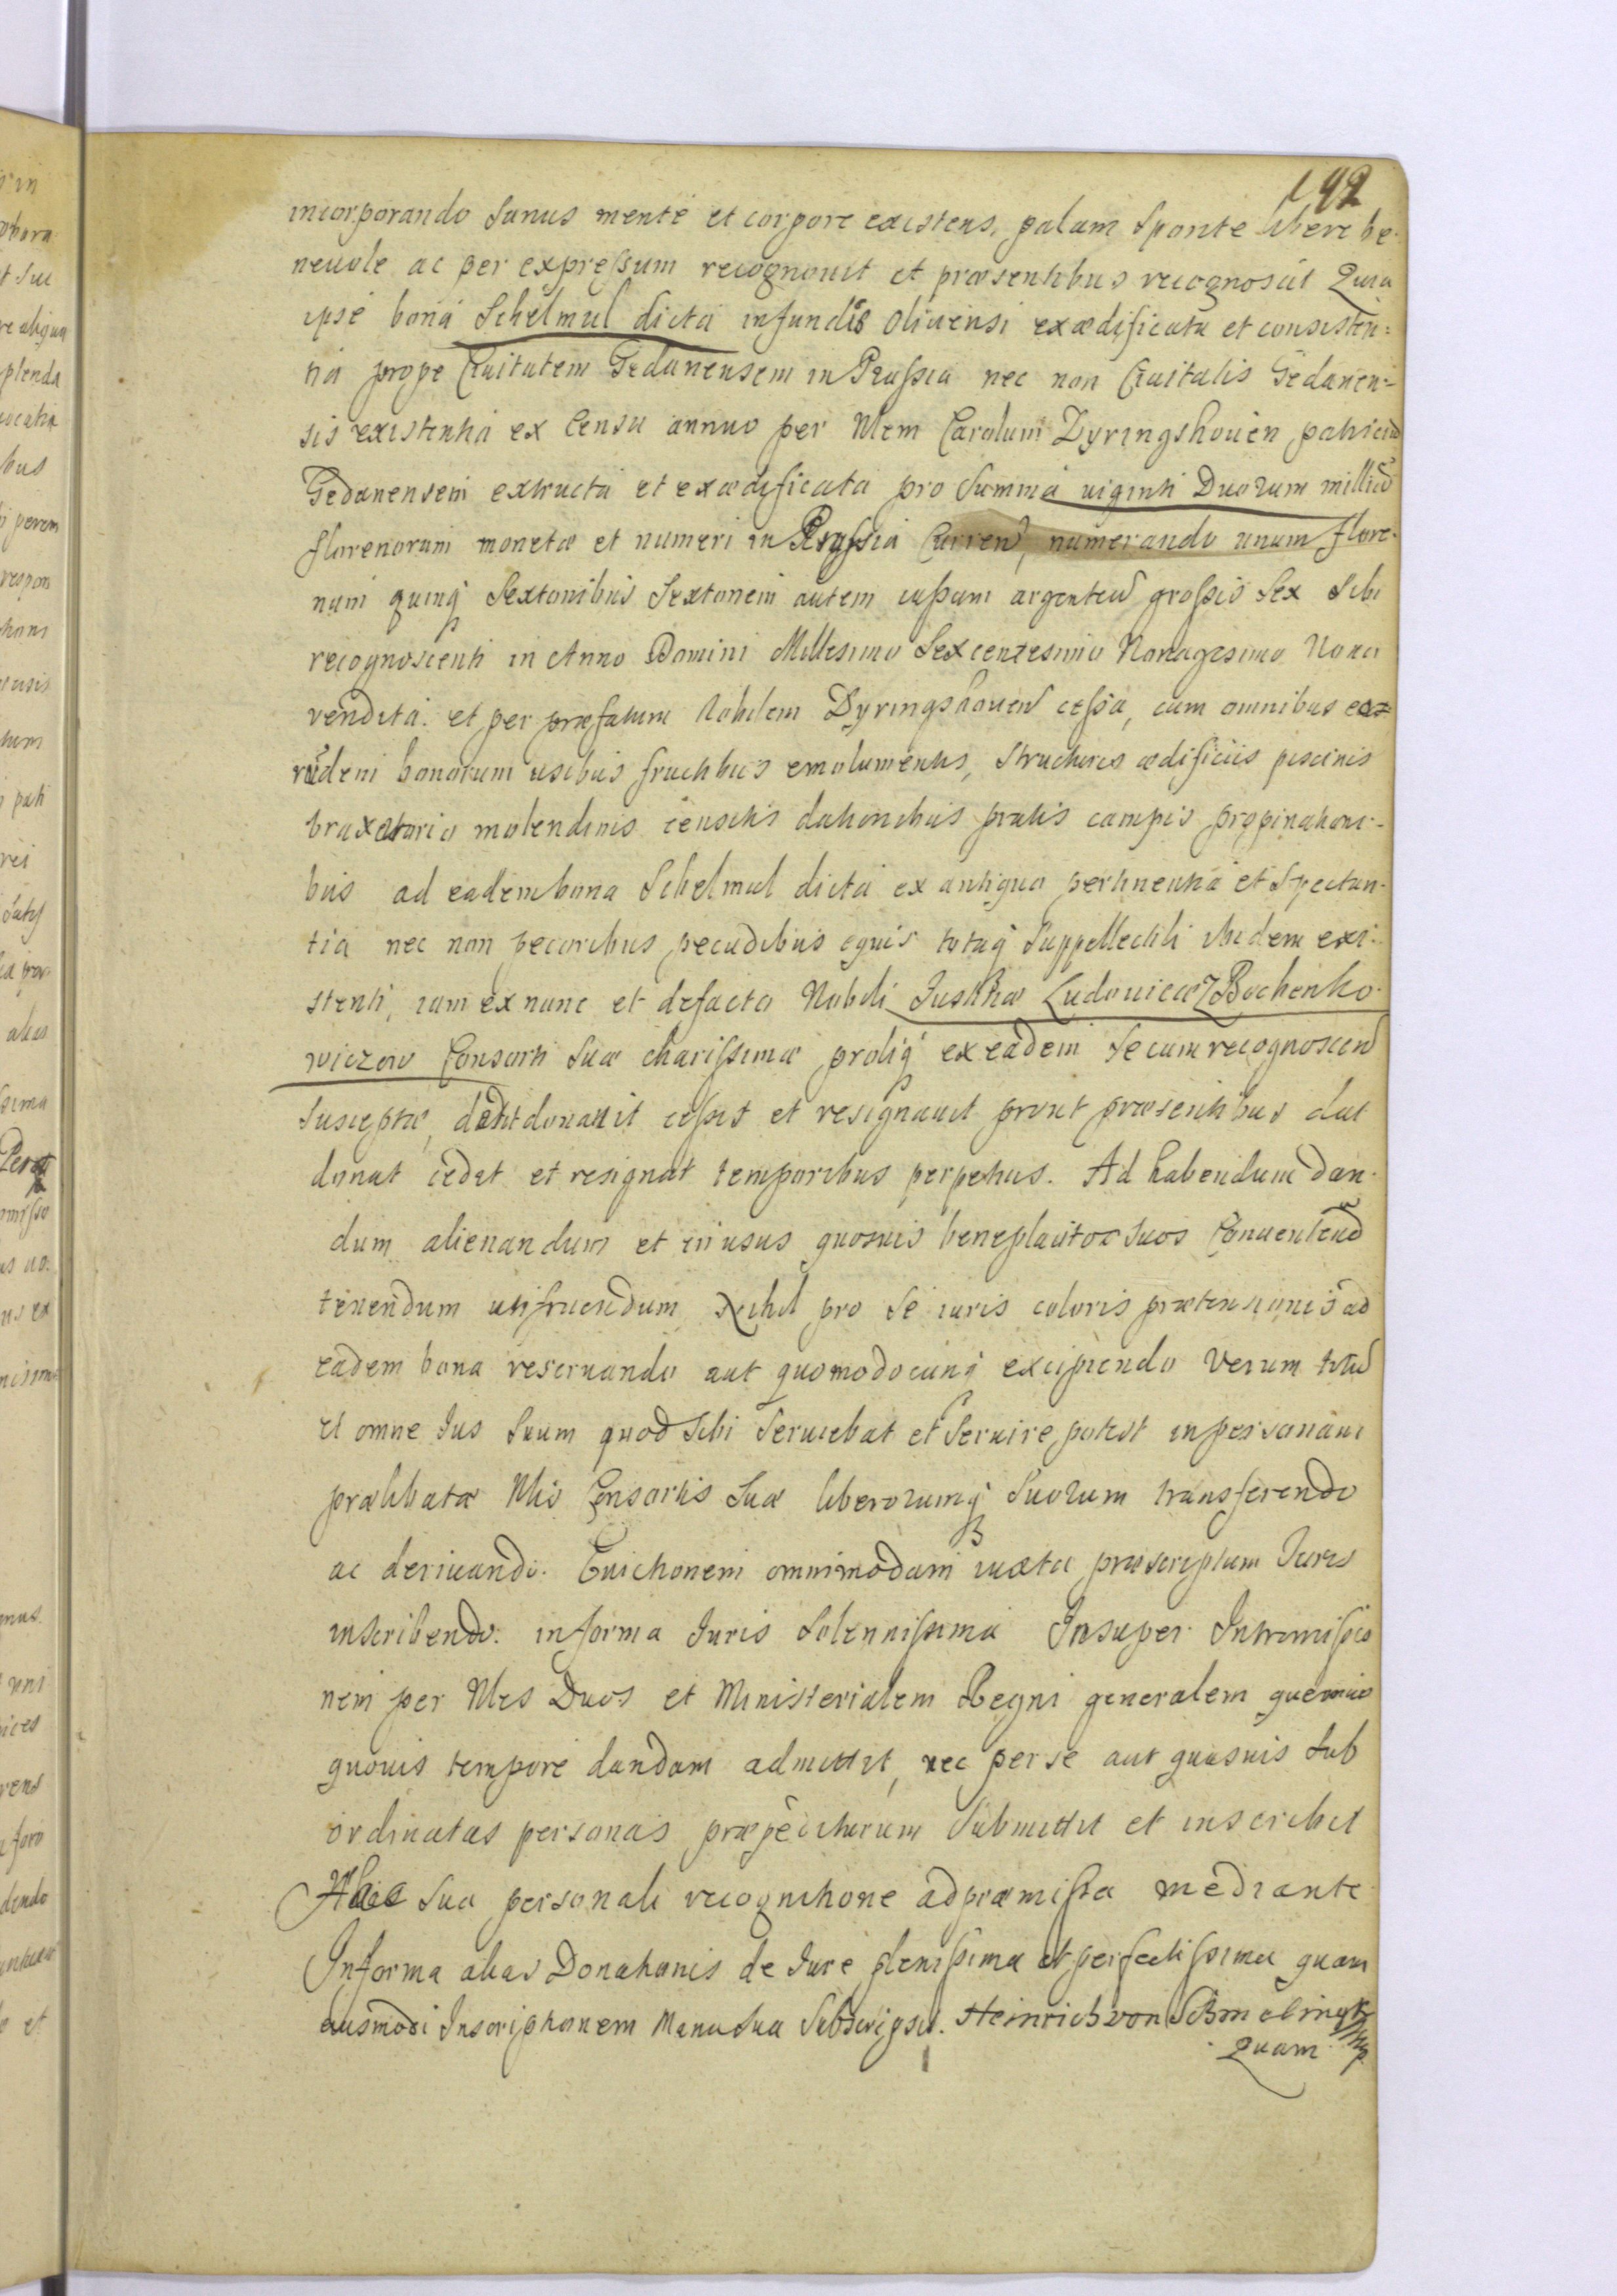 192
incorporando Sanus mente et corpore existens, palam Sponte libere be-
nevole ac per expressum recognouit et præsentibus recognoscit Quia
ipse bona Schelmul dicta in fundis Oliuensi exædificata et consisten=
tia prope Ciuitatem Gedanensem in Prussia nec non Ciuitatis Gedanen=
sis existentia ex Censu annuo per Nlem Carolum Dyringshouen patricium
Gedanensem extructa et exædificata pro Summa uiginti Duorum millium
florenorum monetæ et numeri in Prussia Curren, numerando unum flore-
num quinq Sextonibus Sextonem autem cussum argenteum grossis Sex Sibi
recognoscenti in Anno Domini Millesimo Sexcentesimo Nonagesimo Nono
vendita. et per præfatum Nobilem Dyringshouen cessa, cum omnibus eo=
rudem bonorum usibus fructibus emolumentis, Structuris ædificiis piscinis
braxatorio molendinis censitis dationibus pratis campis propinationi-
bus ad eadem bona Schelmul dicta ex antiquo pertinentia et Spectan-
tia nec non pecoribus pecudibus equis totaq Suppellectili ibidem exi-
stenti, iam ex nunc et defacto Nobili Justinæ Ludouicæ Bochenko-
wiczow Consorti Suæ charissimæ proliq ex eadem Secum recognoscen
Susceptæ, dedit donauit cessit et resignauit prout præsentibus dat
donat cedit et resignat temporibus perpetuis. Ad habendum dan-
dum alienandum et in usus quosuis beneplacitos Suos Conuertend
tenendum utifruendum Nihil pro Se iuris coloris prætensionis ad
eadem bona reseruando aut quomodocunq excipiendo Verum totum
et omne Ius Suum quod Sibi Seruiebat et Seruire potest in personam
prælibatæ Nlis Consortis Suæ liberorumq Suorum transferendo
ac deriuando. Euictionem omnimodam iuxta præscriptum Iuris
inscribendo. in forma Iuris Solennissima Insuper Intromissio
nem per Nles Duos et Ministerialem Regni generalem quemuis
quouis tempore dandam admittit, nec per se aut quasuis Sub
ordinatas personas præpediturum Submittit et inscribit
Hac Sua personali recognitione ad præmissa mediante
In forma alias Donationis de Iure plenissima et perfectissima quam
eiusmodi Inscriptionem Manu Sua Subscripsit. Heinrich von Schmeling
Quam